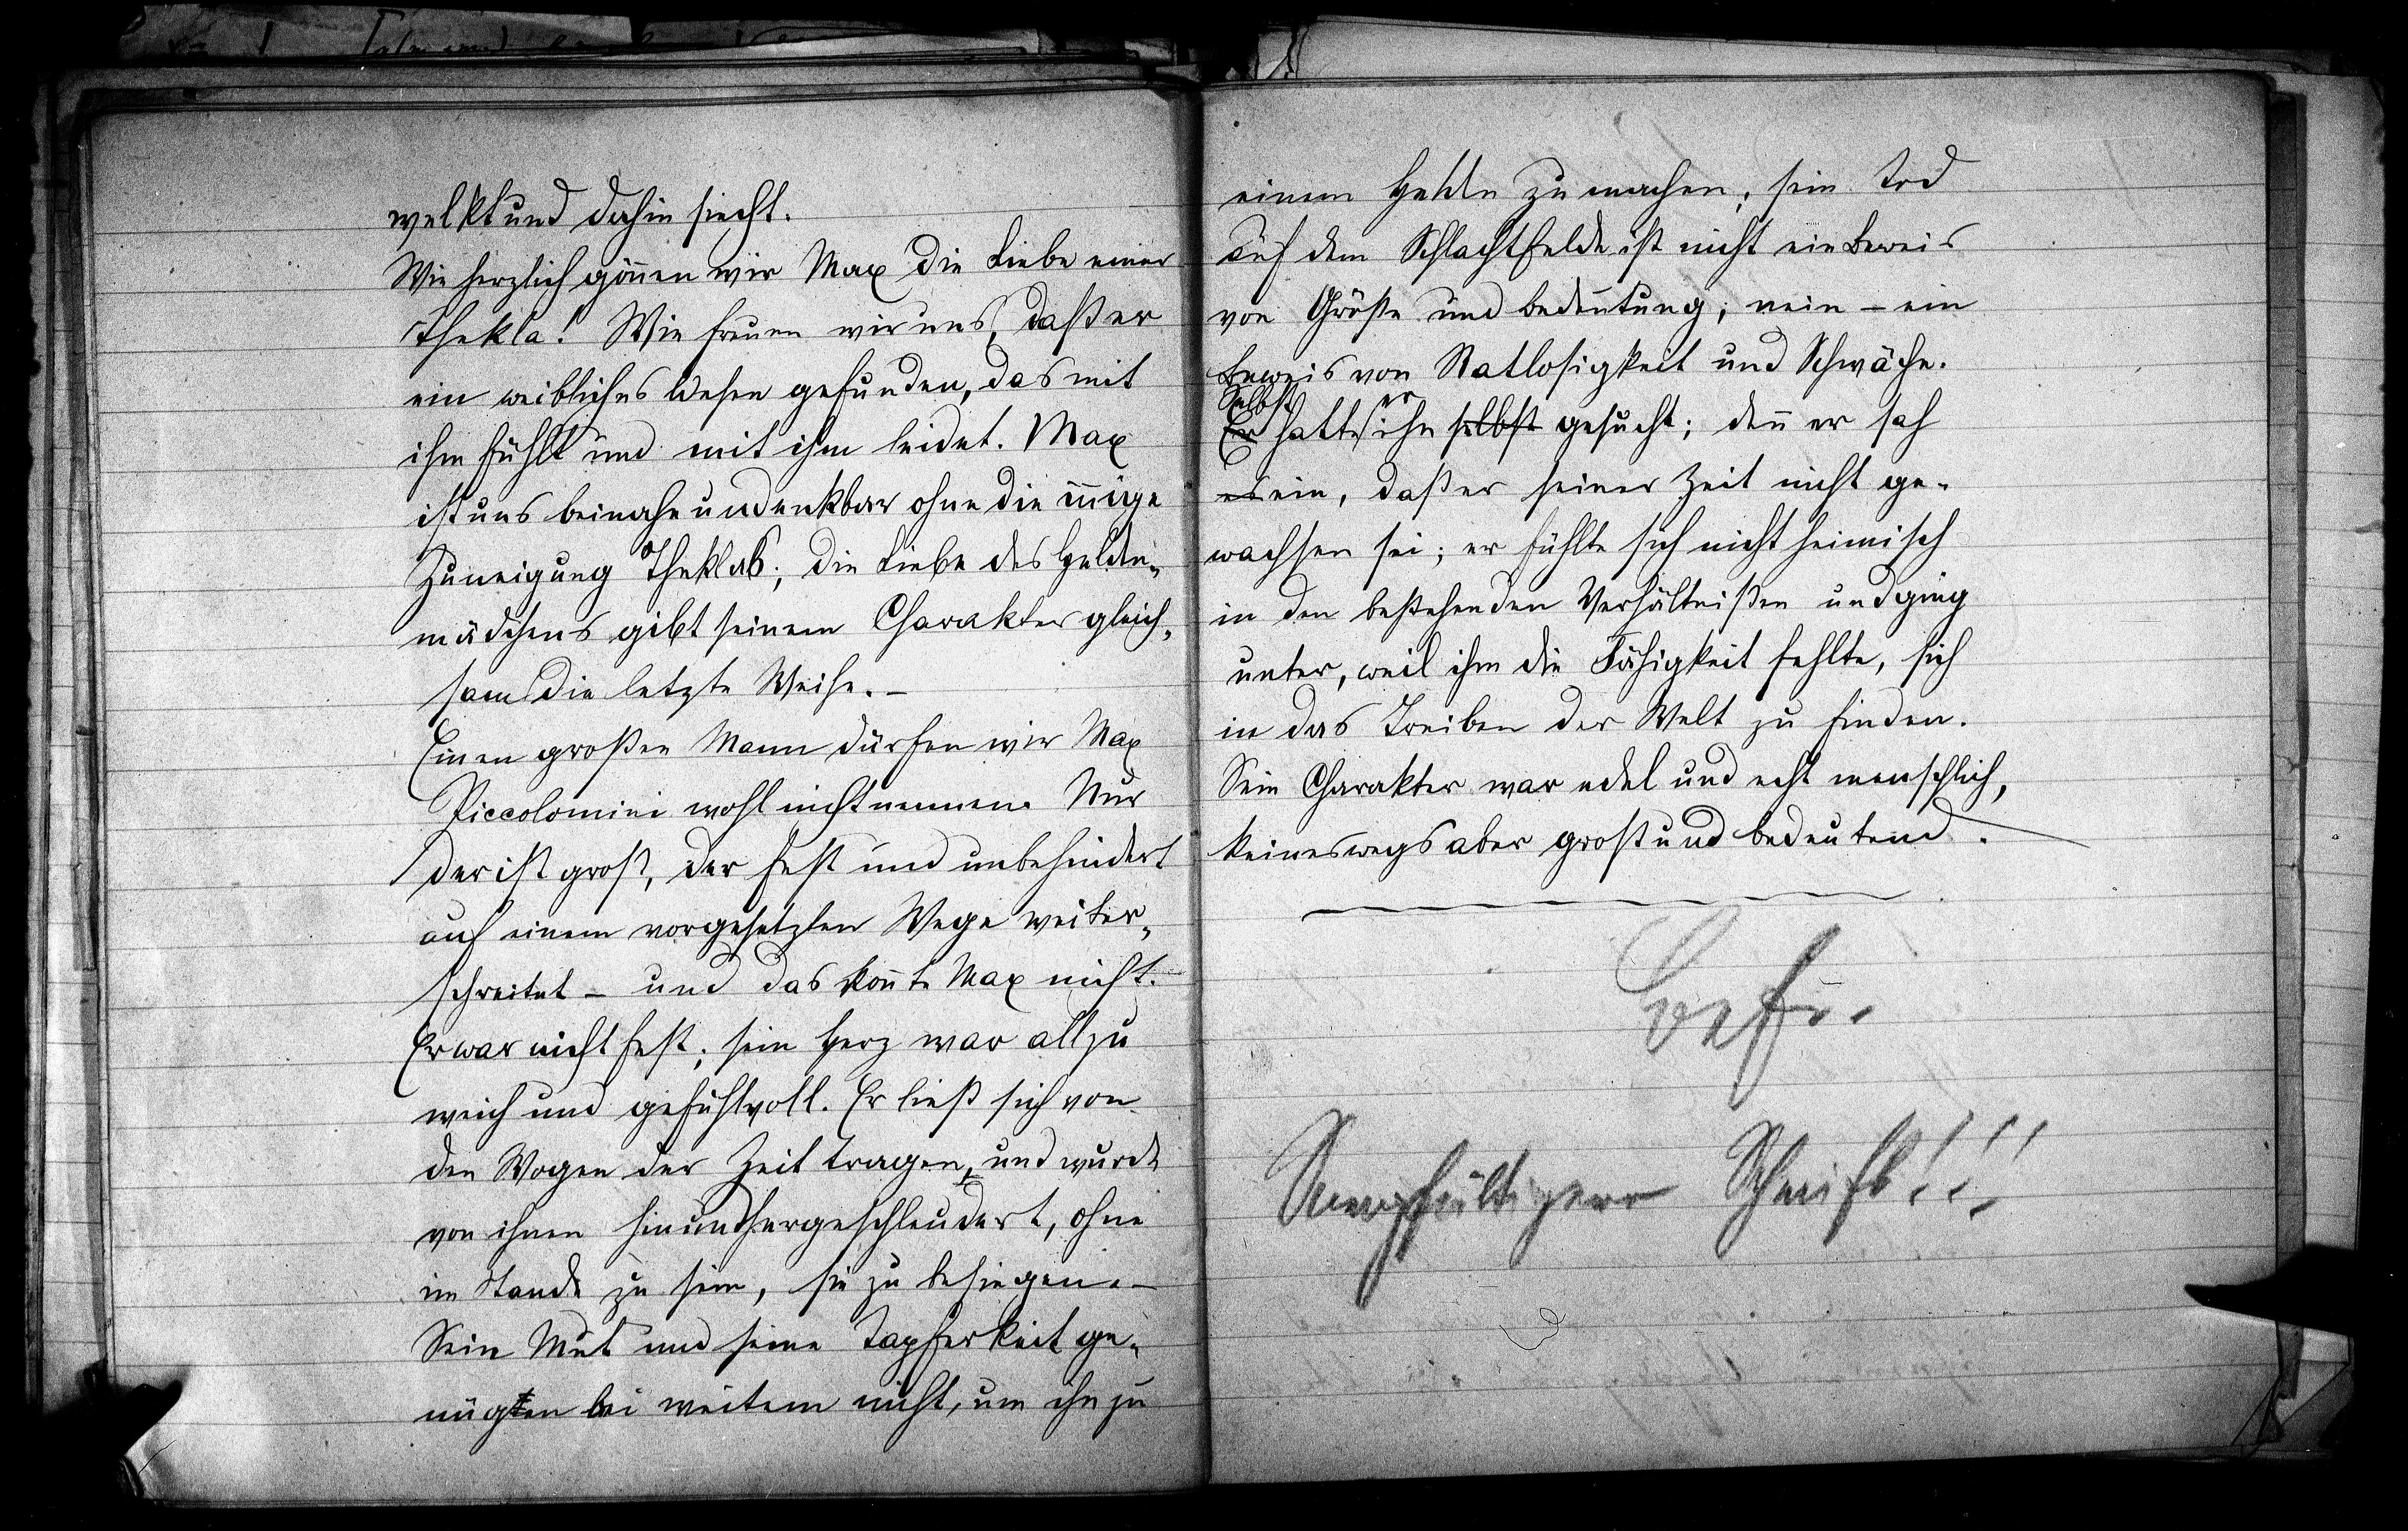 welkt und dahin siecht.
Wie herzlich gönnen wir Max die Liebe einer
Thekla! Wie freuen wir uns, daß er
ein weibliches Wesen gefunden, das mit
ihm fühlt und mit ihm leidet. Max
ist uns beinahe undenkbar ohne die innige
Zuneigung Theklas; die Liebe des Helden-
mädchens gibt seinem Charakter gleich-
sam die letzte Weihe. –
Einen großen Mann dürfen wir Max
Piccolomini wohl nicht nennen. Nur
der ist groß, der fest und unbehindert
auf einem vorgesetzten Wege weiter-
schreitet – und das konnte Max nicht.
Er war nicht fest; sein Herz war allzu
weich und gefühlvoll. Er ließ sich von
den Wogen der Zeit tragen, und wurde
von ihnen hinundhergeschleudert, ohne
im Stande zu sein, sie zu besiegen. –
Sein Mut und seine Tapferkeit ge-
nügten bei weitem nicht, um ihn zu
einem Helden zu machen; sein Tod
auf dem Schlachtfelde ist nicht ein Beweis
von Größe und Bedeutung; nein – ein
Beweis von Ratlosigkeit und Schwäche.
Selbst er
Er hatte ihn selbst gesucht; denn er sah
es ein, daß er seiner Zeit nicht ge-
wachsen sei; er fühlte sich nicht heimisch
in den bestehenden Verhältnißen und ging
unter, weil ihm die Fähigkeit fehlte, sich
in das Treiben der Welt zu finden.
Sein Charakter war edel und echt menschlich,
keineswegs aber groß und bedeutend.
Sorgfältigere Schrift!!!